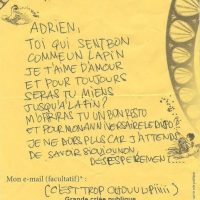 ADRIEN,
TOI QUI SENT BON
COMME UN LAPIN
JE T'AIME D'AMOUR
ET POUR TOUJOURS
SERAS TU MIENS
JUSQU'A LA FIN?
M'OFFRIRAS TU UN BON RESTO
ET POUR MON ANNIVERSAIRE LE
JE NE DORS PLUS CAR J'ATTENDS
DE SAVOIR SI OUI OU NON,
DESESPEREMENT.
Mon e-mail (facultatif)* :
(C'EST TROP CHOUU
Grande criée publique